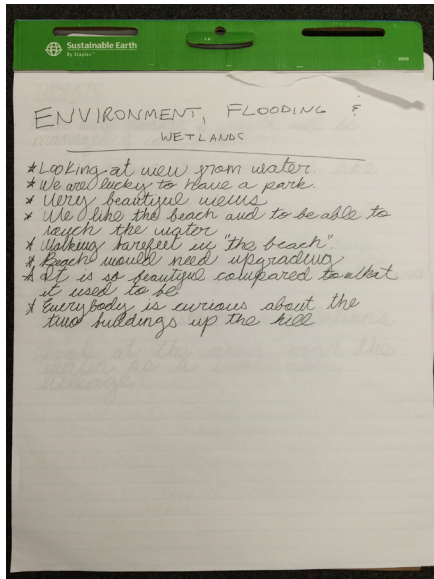 Sustainable Earth
By Staples
ENVIRONMENT, FLOODING &
WETLANDS
* Looking at view from water
* We are lucky to have a park.
* Very beautiful views
* We like the beach and to be able to
touch the water
* Walking barefeet in "the beach".
* Beach would need upgrading
* It is so beautiful compared to what
it used to be
* Everybody is curious about the
two buildings up the hill